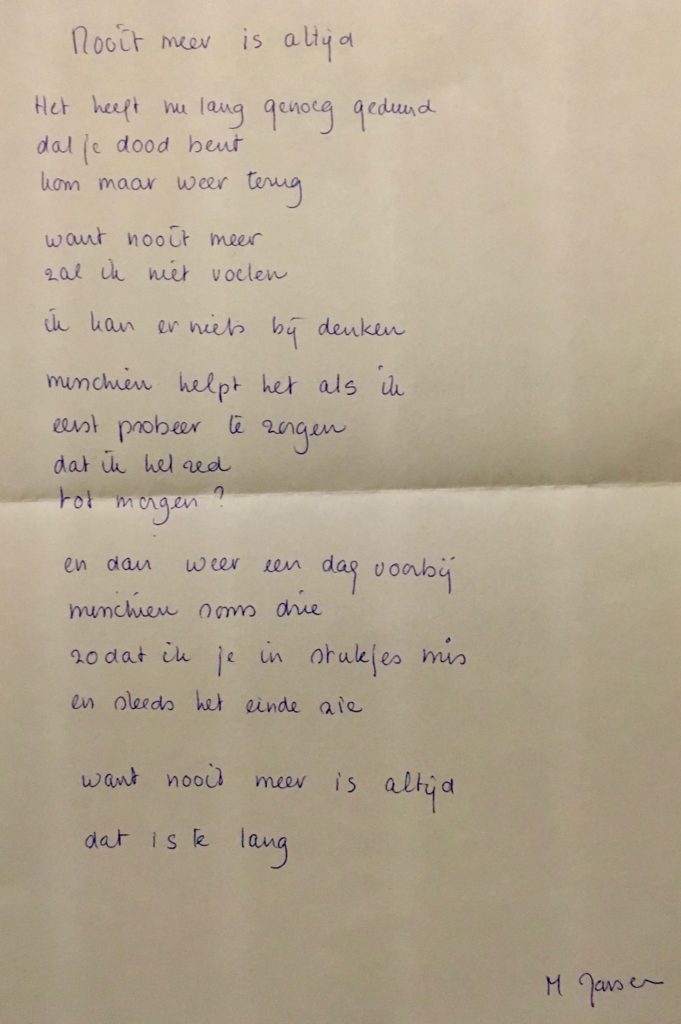 Nooit meer is altijd
Het heeft nu lang genoeg geduurd
dat je dood bent
kom maar weer terug
want nooit meer
zal ik niet voelen
ik kan er niets bij denken
misschien helpt het als ik
eerst probeer te zorgen
dat ik het red
tot morgen?
en dan weer een dag voorbij
misschien soms drie
zodat ik je in stukjes mis
en steeds het einde zie
want nooit meer is altijd
dat is te lang
M Jansen